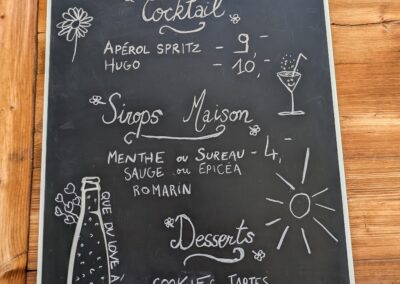 Cocktail
APÉROL SPRITZ - 9,-
HUGO - 10,-
Sirops Maison
MENTHE ou SUREAU - 4,-
SAUGE ou ÉPICÉA
ROMARIN
QUE DU LOVE À
Desserts
COOKIES TARTES